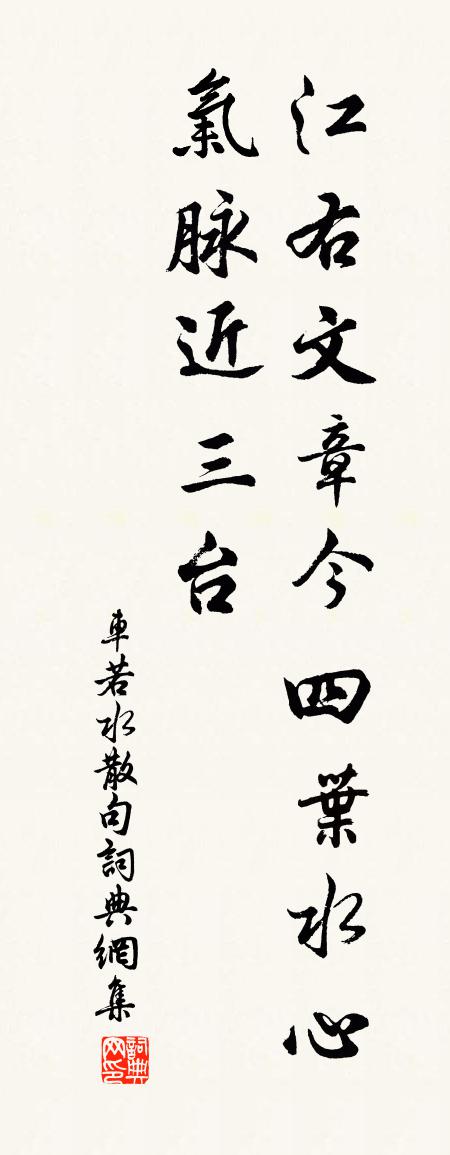 江右文章今四葉水心
氣脉近三台
車若水散句詞典網集
詞典网印